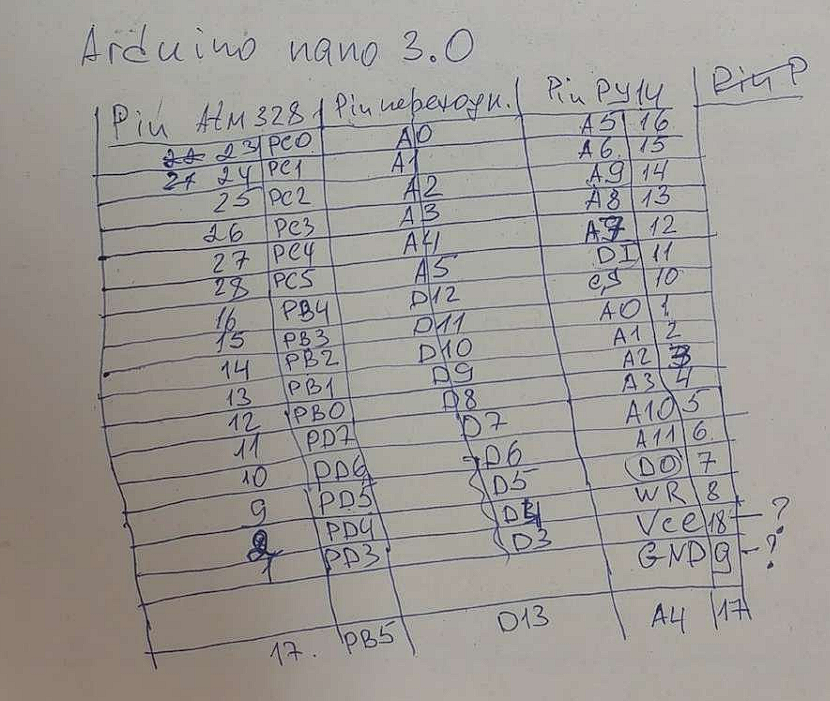 Arduino nano 3.0
Pin AtM328 Pin переходн. Pin РУ14 Pin P
22 23 PC0 A0 A5 16
21 24 PC1 A1 A6 15
25 PC2 A2 A9 14
26 PC3 A3 A8 13
27 PC4 A4 A7 12
28 PC5 A5 DI 11
16 PB4 D12 CS 10
15 PB3 D11 A0 1
14 PB2 D10 A1 2
13 PB1 D9 A2 3
12 PB0 D8 A3 4
11 PD7 D7 A10 5
10 PD6 D6 A11 6
9 PD5 D5 DO 7
2 PD4 D4 WR 8
1 PD3 D3 Vcc 18 - ?
GND 9 - ?
17. PB5 D13 A4 17